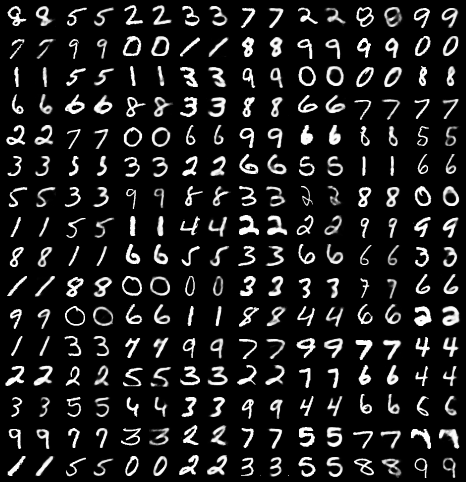 8 8 5 5 2 2 3 3 7 7 2 2 8 8 9 9
7 7 9 9 0 0 1 1 8 8 9 9 9 9 0 0
1 1 5 5 1 1 3 3 9 9 0 0 0 0 8 8
6 6 6 6 8 8 3 3 8 8 6 6 7 7 7 7
2 2 7 7 0 0 6 6 9 9 6 6 8 8 5 5
3 3 5 5 3 3 2 2 6 6 5 5 1 1 6 6
5 5 3 3 9 9 8 8 3 3 2 2 8 8 0 0
1 1 5 5 1 1 4 4 2 2 2 2 9 9 9 9
8 8 1 1 6 6 5 5 3 3 6 6 6 6 3 3
1 1 8 8 0 0 0 0 3 3 3 3 7 7 6 6
9 9 0 0 6 6 1 1 8 8 4 4 6 6 2 2
1 1 3 3 7 7 9 9 7 7 9 9 7 7 4 4
2 2 2 2 5 5 3 3 2 2 7 7 6 6 4 4
3 3 5 5 4 4 3 3 9 9 4 4 6 6 6 6
9 9 7 7 3 3 2 2 7 7 5 5 7 7
1 1 5 5 0 0 2 2 3 3 5 5 8 8 9 9